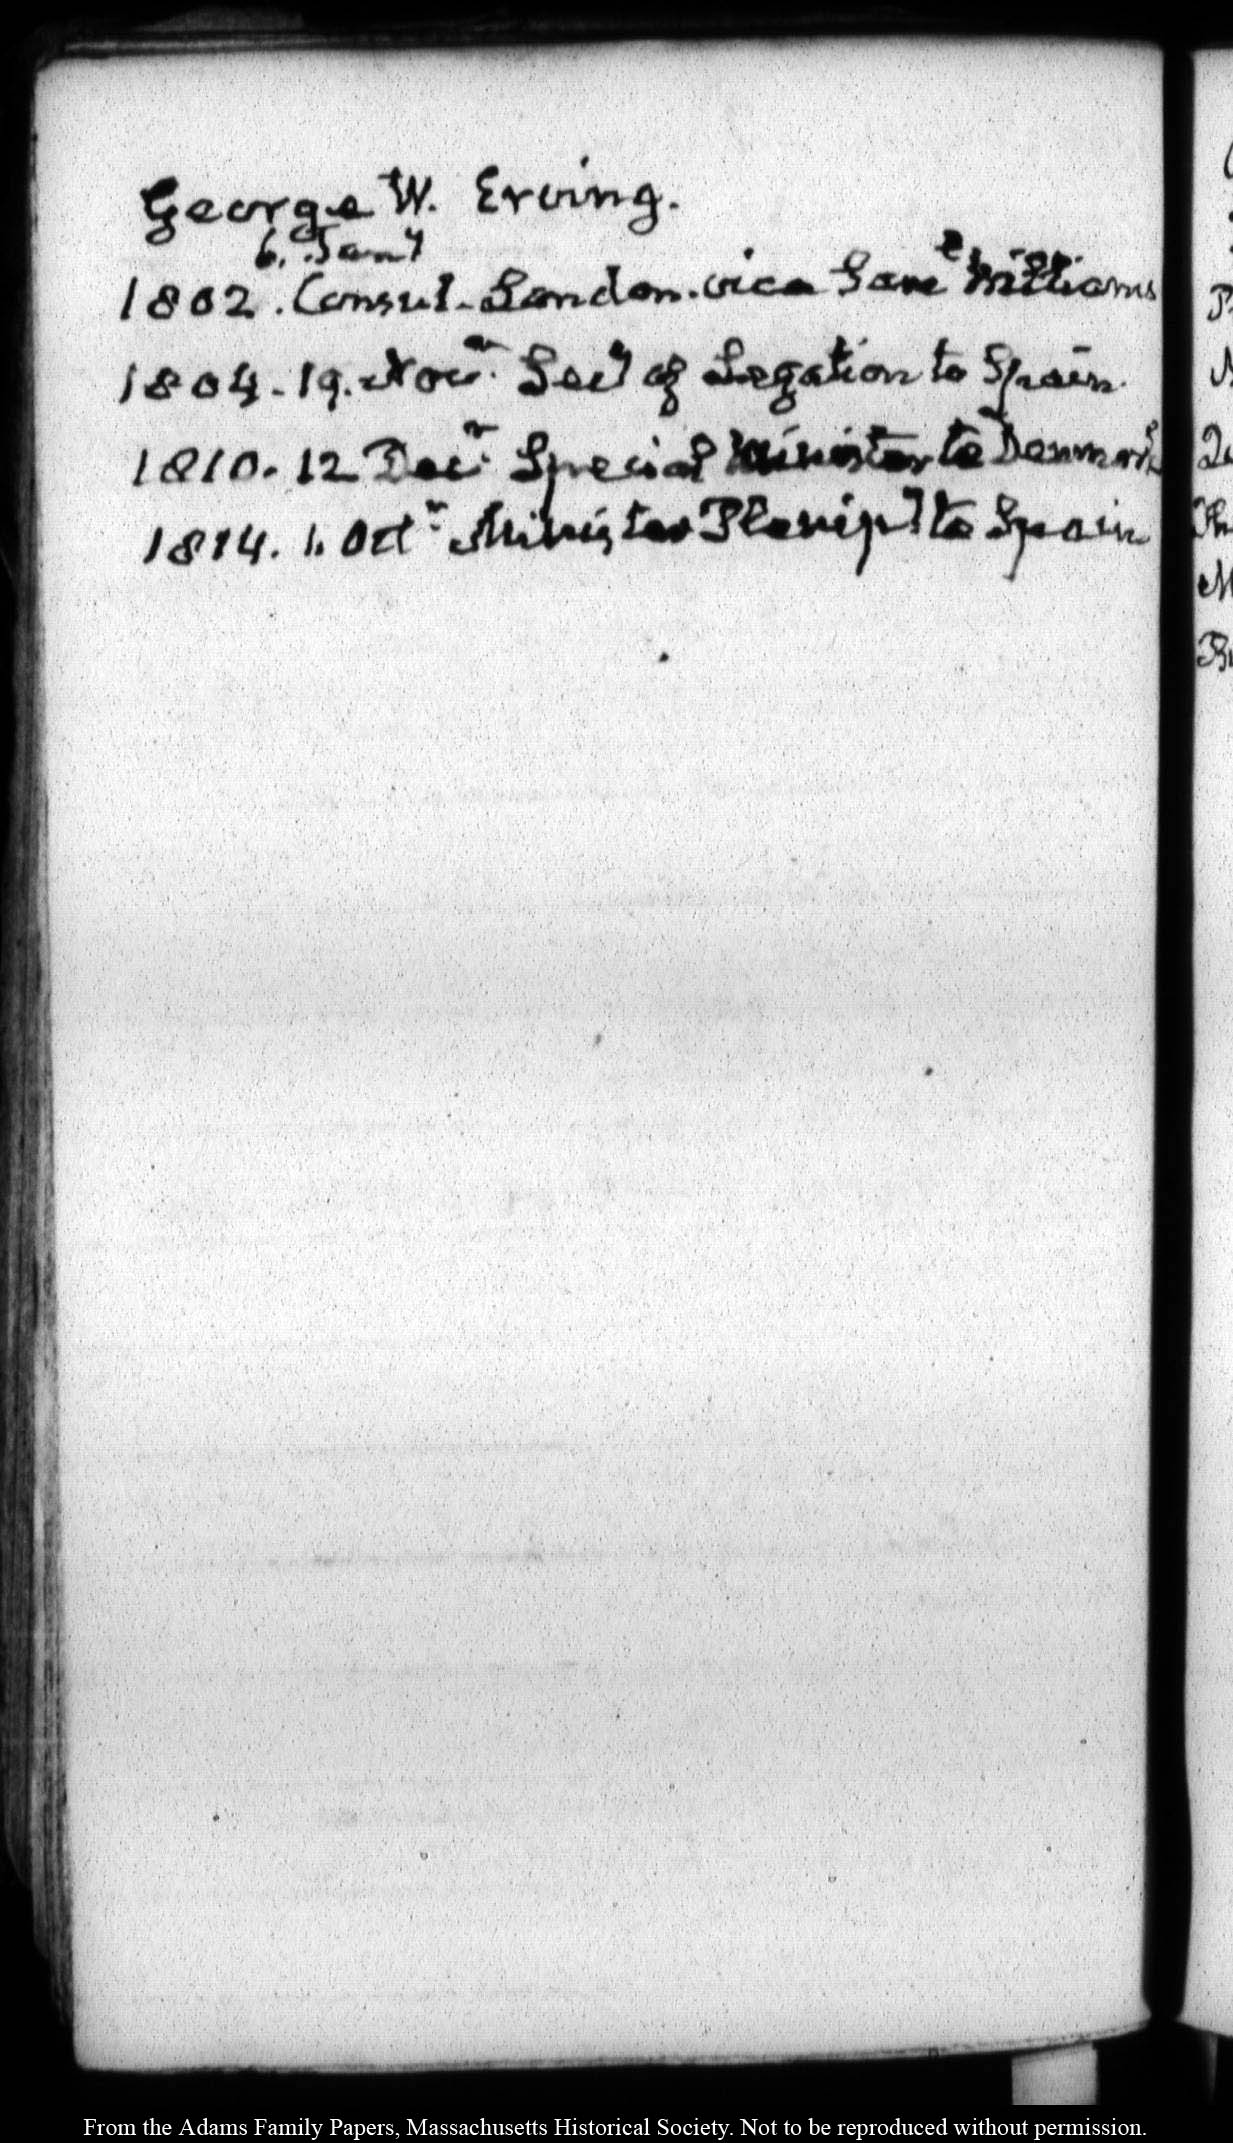 George W. Erving.
6. Jany
1802. Consul. London. vice Saml Williams
1804. 19. Novr. Secy of Legation to Spain.
1810. 12 Decr. Special Minister to Denmark
1814. 1. Octr. Minister Plenipy to Spain
From the Adams Family Papers, Massachusetts Historical Society. Not to be reproduced without permission.